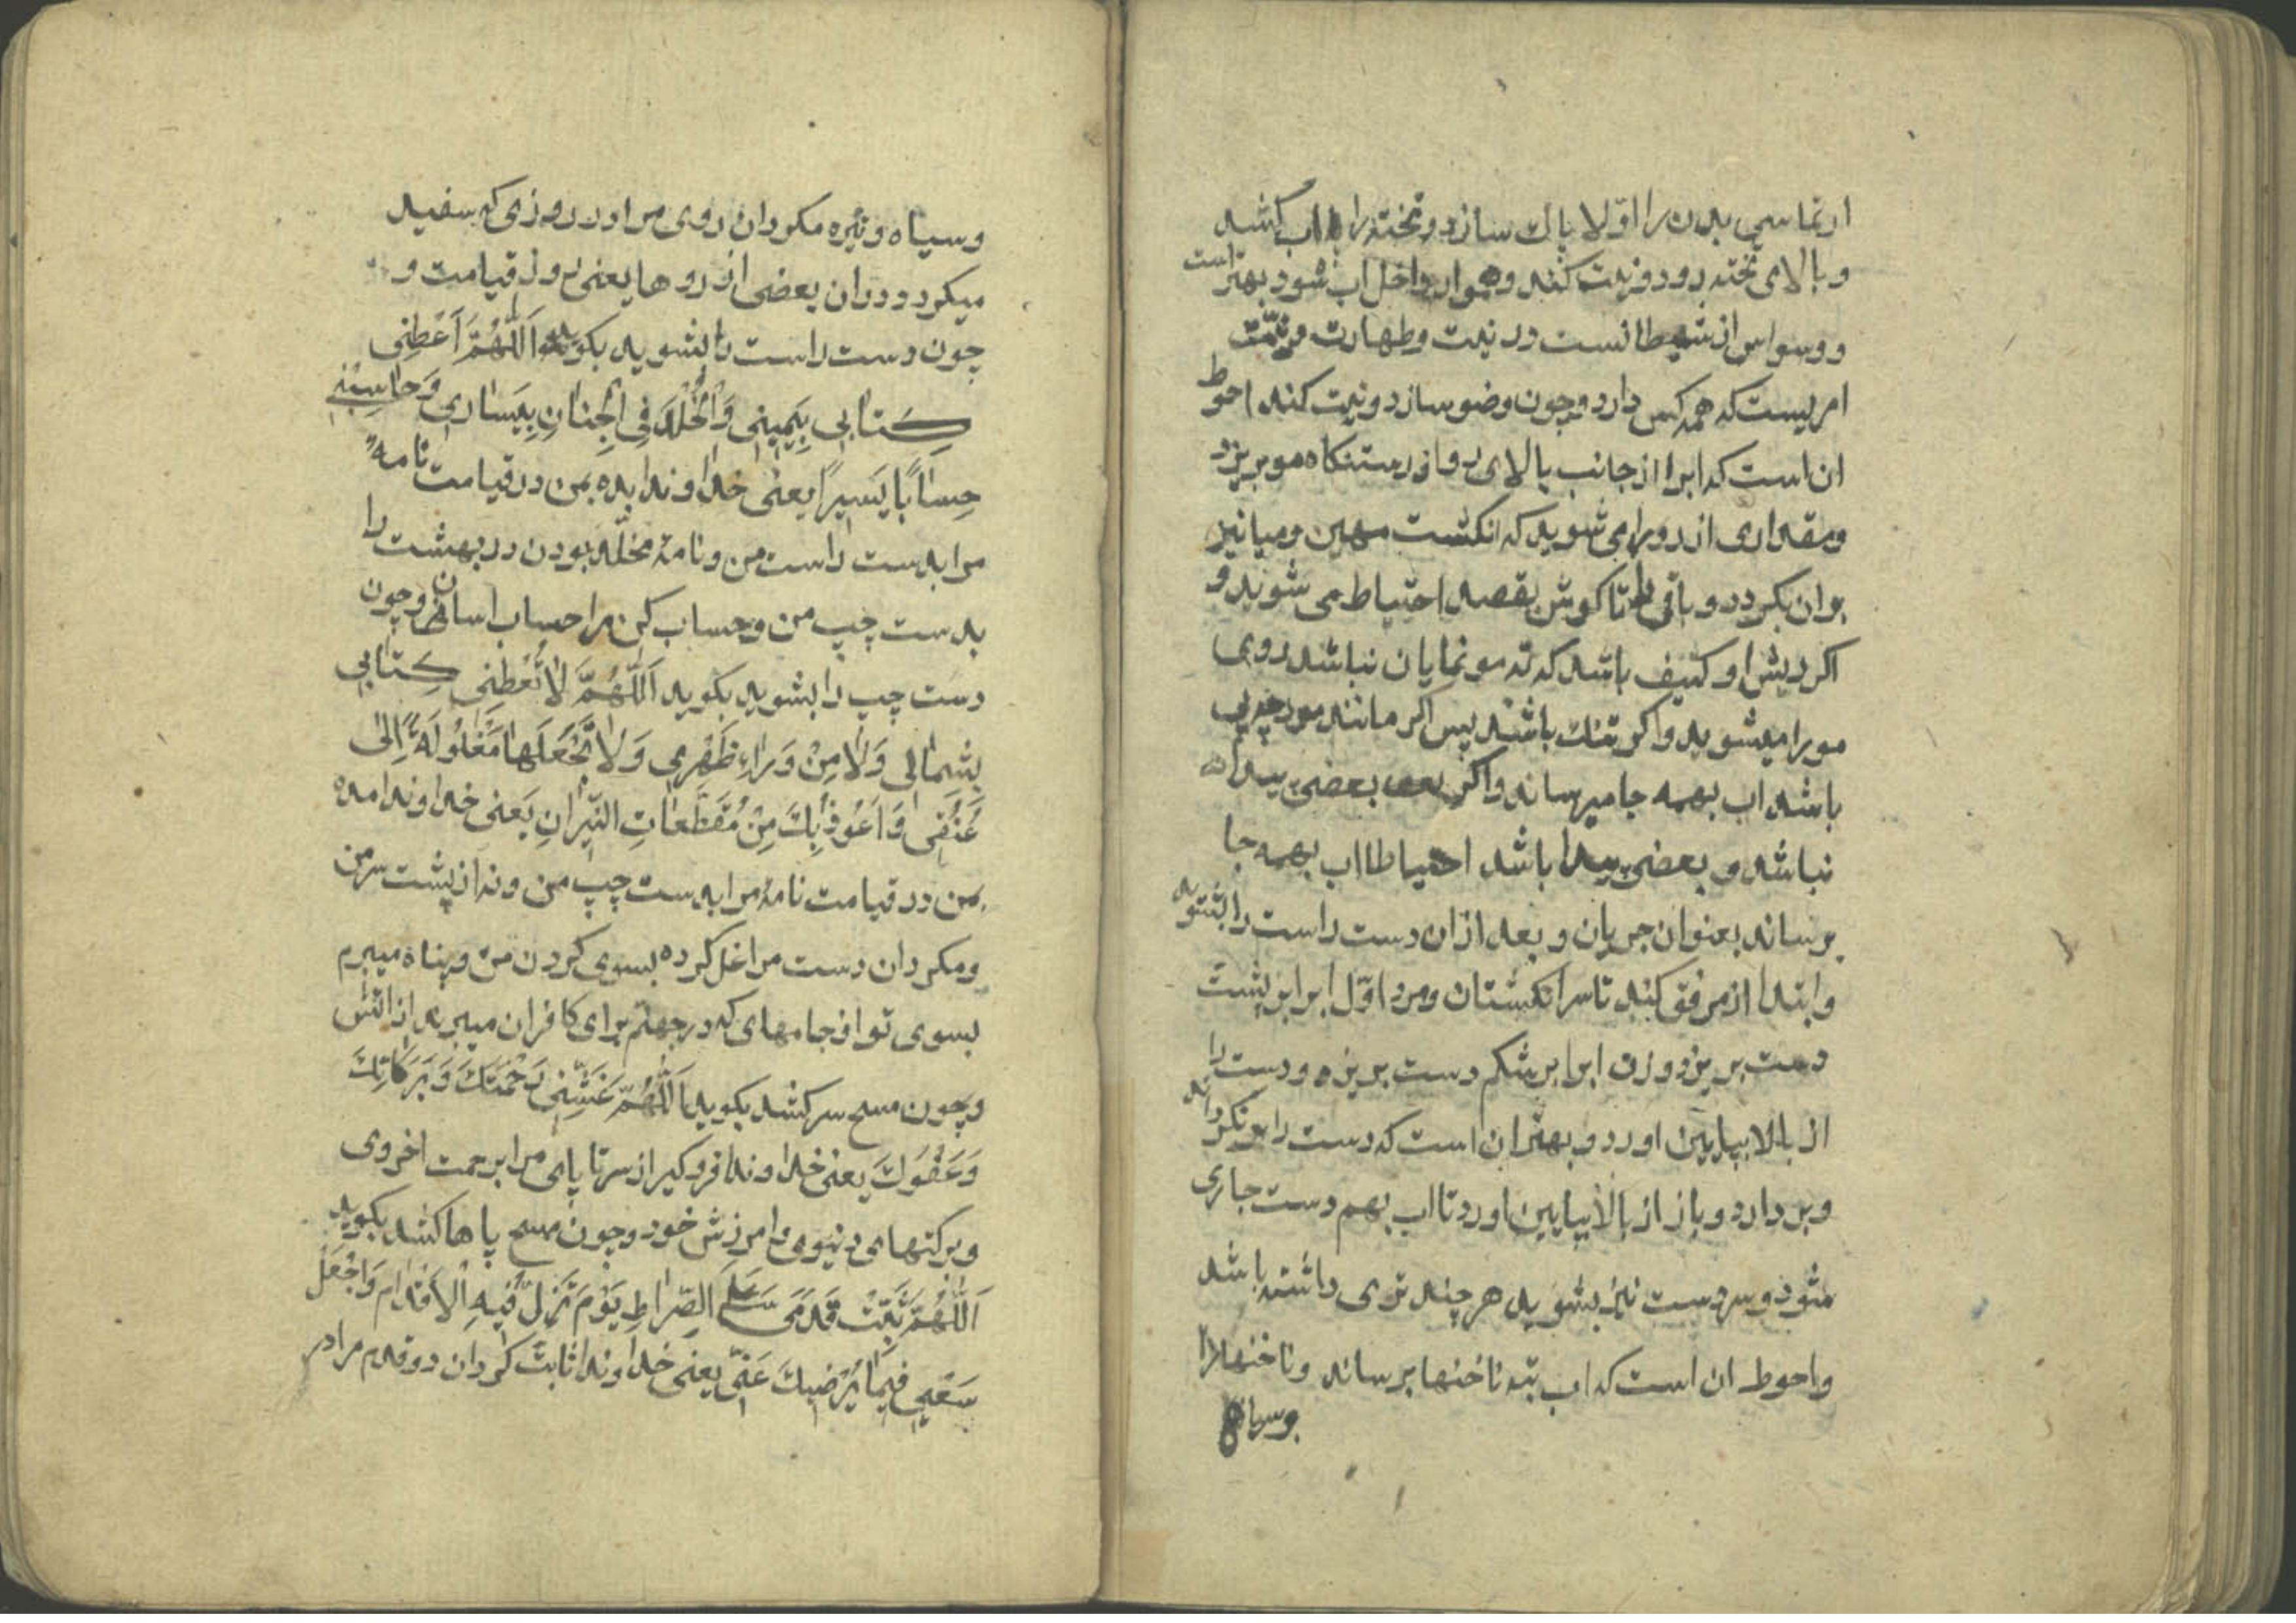 ارتماسی بدن را اولا پاك سازد و تخته را باب كشد
و بالای تخته رود و نیت كند و هموار داخل اب شود بهتر است
و وسواس از شیطانست در نیت و طهارت و نیت
امریست كه همه كس دارد و چون وضو سازد و نیت كند احوط
ان است كه ابرا از جانب بالای رو از رستنكاه مو بریزد
و مقداری از رو را می شوید كه انكشت مهین و میانین
بران بكردد و باقی را تا كوش بقصد احتیاط می شوید و
اكر ریش او كثیف باشد كه ته مو نمایان نباشد روی
مو را میشوید و اكر تنك باشد پس اكر مانند مورچه پی
باشد اب بهمه جا میرساند و اكر بعضی پیدا
نباشد و بعضی پیدا باشد احتیاطا اب بهمه جا
برساند بعنوان جریان و بعد ازان دست راست را بشوید
و ابتدا از مرفق كند تا سر انكشتان و مرد اوّل ابرا بر پشت
دست بریزد و زن ابرا بر شكم دست بریزد و دست را
از بالا بپایین اورد و بهتر ان است كه دست را بر نكرداند
و بر دارد و باز از بالا بپایین اورد تا اب بهم دست جاری
شود و سر دست نیز بشوید هر چند تری داشته باشد
و احوط ان است كه اب بته ناخنها برساند و ناخنها را
و سیاه و تیره مكردان روی مرا در روزی كه سفید
میكردد دران بعضی از روها یعنی روز قیامت و
چون دست راست را بشوید بكوید اَللّٰهُمَّ اَعْطِنی
كِتٰابی بِیَمینی وَالْخُلْدَ فِی الْجِنٰانِ بِیَسٰاری وَحٰاسِبْنی
حِسٰابًا یَسیرًا یعنی خداوندا بده بمن در قیامت نامهٴ
مرا بدست راست من و نامهٴ مخلّد بودن در بهشت را
بدست چپ من و حساب كن مرا حساب اسان و چون
دست چپ را بشوید بكوید اَللّٰهُمَّ لاٰ تُعْطِنی كِتٰابی
بِشِمٰالی وَلاٰ مِنْ وَرٰاءِ ظَهْری وَلاٰ تَجْعَلْهٰا مَغْلُولَةً اِلیٰ
عُنُقی وَاَعُوذُ بِكَ مِنْ مُقَطَّعٰاتِ النّیرانِ یَعنی خداوندا مده
بمن در قیامت نامهٴ مرا بدست چپ من و نه از پشت سر من
و مكردان دست مرا غل كرده بسوی كردن من و پناه میبرم
بسوی تو از جامهای كه در جهنم برای كافران میبرند از اتش
و چون مسح سر كشد بكوید اَللّٰهُمَّ غَشِّنی رَحْمَتَكَ وَبَرَكٰاتِكَ
وَعَفْوَكَ یعنی خداوندا فرو كیر از سر تا پای مرا برحمت اخروی
و بركتهای دنیوی و امرزش خود و چون مسح پاها كشد بكوید
اَللّٰهُمَّ ثَبِّتْ قَدَمَیَّ عَلَی الصِّرٰاطِ یَوْمَ تَزِلُّ فیهِ الْاَقْدٰام وَاجْعَلْ
سَعْیی فیمٰا یُرْضیكَ عَنّی یعنی خداوندا ثابت كردان دو قدم مرا در